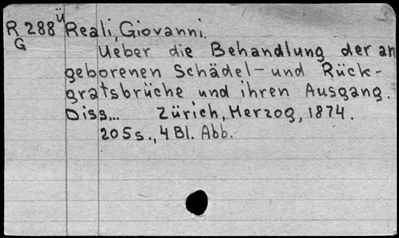 R 288 ü Reali, Giovanni.
G Ueber die Behandlung der an
geborenen Schädel- und Rück-
gratsbrüche und ihren Ausgang.
Diss,.. Zürich, Herzog, 1874.
205s., 4 Bl. Abb.